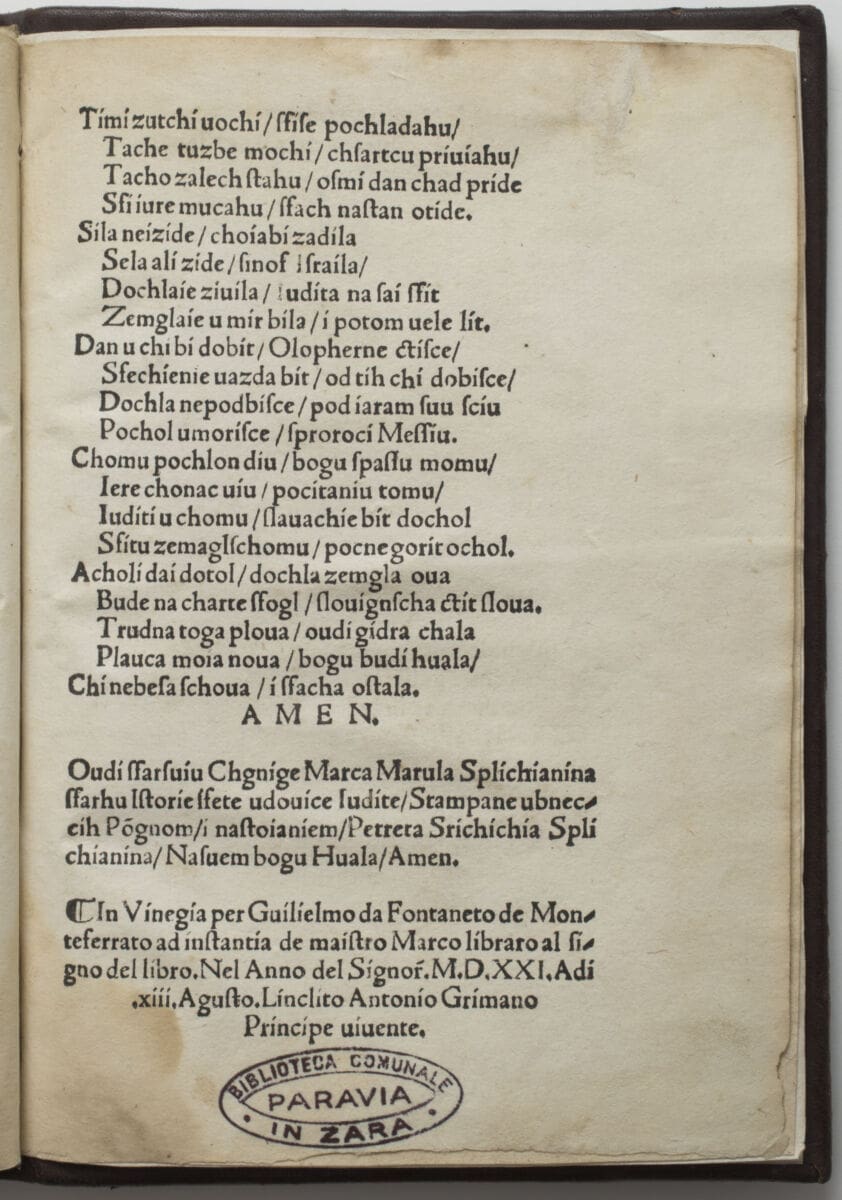 Timi zutchi uochi/ ſſiſe pochladahu/
Tache tuzbe mochi/ chſartcu priuiahu/
Tacho zalech ſtahu/ oſmi dan chad pride
Sſi iure mucahu/ ſſach naſtan otide.
Sila neizide/ choiabi zadila
Sela ali zide/ ſinof Iſraila/
Dochlaie ziuila/ Iudita na ſai ſſit
Zemglaie u mir bila/ i potom uele lit.
Dan u chi bi dobit/ Olopherne ctiſce/
Sfechienie uazda bit/ od tih chi dobiſce/
Dochla nepodbiſce/ pod iaram ſuu ſciu
Pochol umoriſce/ ſproroci Meſſiu.
Chomu pochlon diu/ bogu ſpaſſu momu/
Iere chonac uiu/ pocitaniu tomu/
Iuditi u chomu/ ſlauachie bit dochol
Sfitu zemaglſchomu/ pocne gorit ochol.
Acholi dai dotol/ dochla zemgla oua
Bude na charte ſfogl/ ſlouignſcha ctit ſloua.
Trudna toga ploua/ oudi gidra chala
Plauca moia noua/ bogu budi huala/
Chi nebeſa ſchoua/ i ſfacha oſtala.
A M E N.
Oudi ſſarſuiu Chgnige Marca Marula Splichianina
ſſarhu Iſtorie ſſete udouice Iudite/ Stampane ubnec⸗
cih Põgnom/ i naſtoianiem/ Petrera Srichichia Spli
chianina/ Naſuem bogu Huala/ Amen.
¶In Vinegia per Guilielmo da Fontaneto de Mon⸗
teferrato ad inſtantia de maiſtro Marco libraro al ſi⸗
gno del libro. Nel Anno del Signor̃. M.D.XXI. Adi
.xiii. Aguſto. Linclito Antonio Grimano
Principe uiuente.
BIBLIOTECA COMUNALE
PARAVIA
IN ZARA